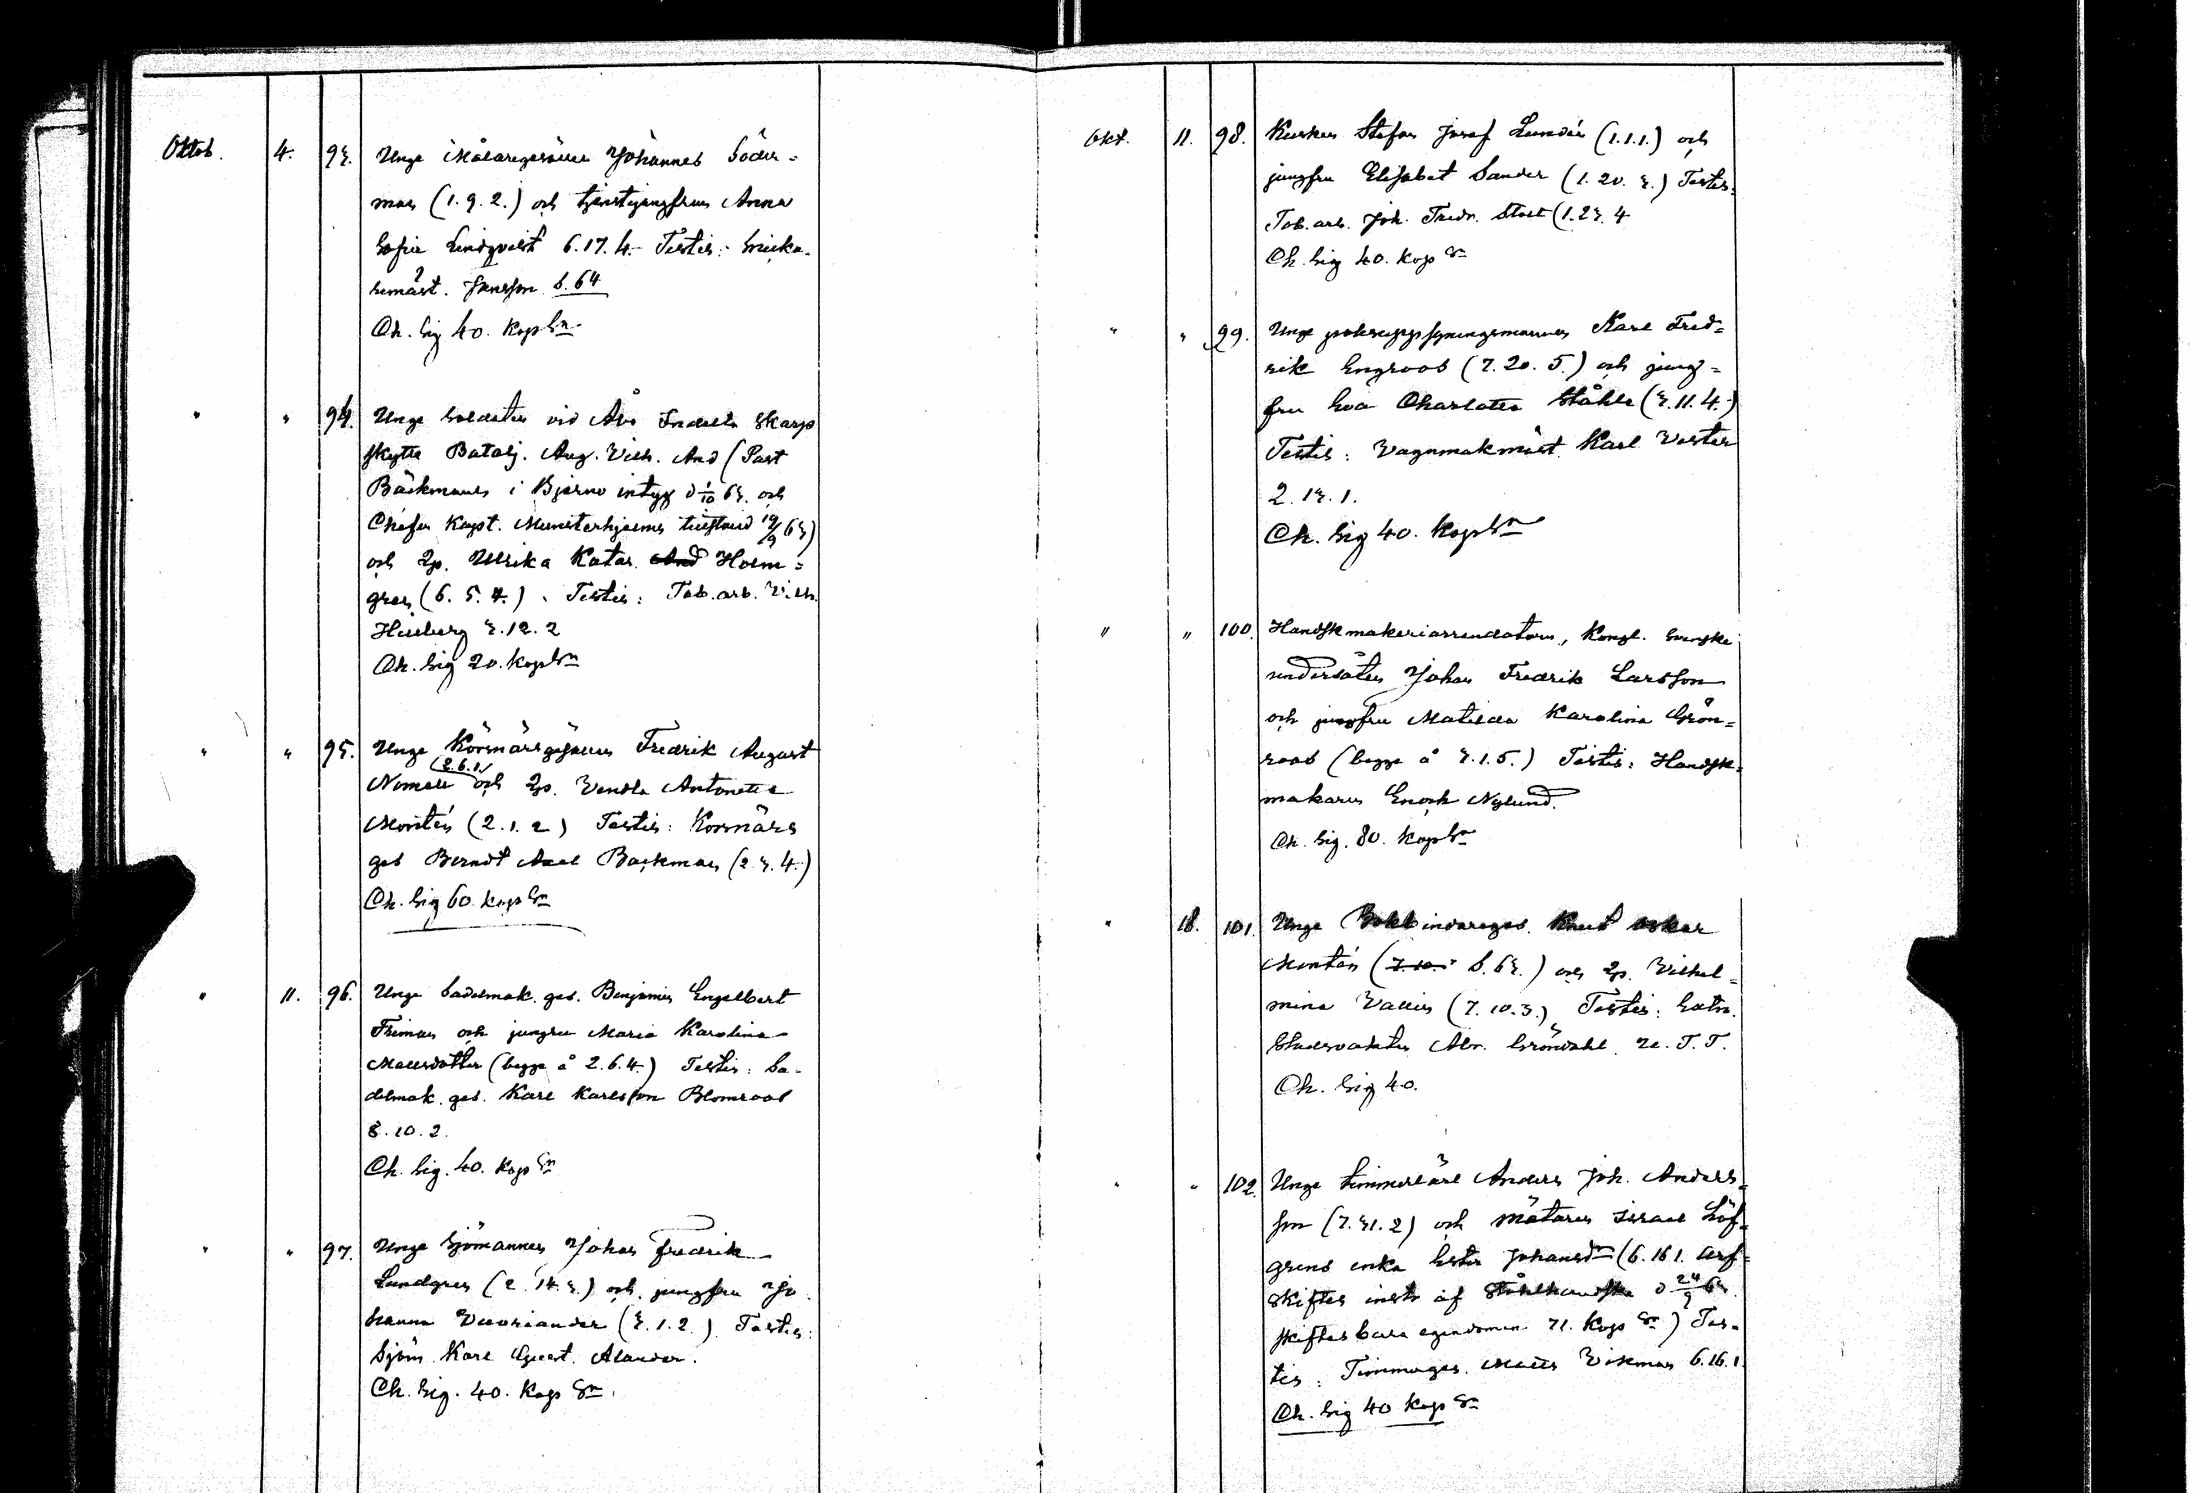 Oktob. 4. 93. Unge Målaregesällen Johannes Söder-
man (1.9.2.) och tjenstejungfrun Anna
Sofia Lindqvist 6.17.4. Testis: Snicka-
remäst. Jansson S. 64
Ch. Sig 40. Kop Sr
" " 94. Unge Soldaten vid Åbo Indelta Skarp
skytte Batalj. Aug. Vilh. And (Past
Bäckmans i Bjerno intyg d 1/10 63. och
Chefen Kapt. Munsterhjelms tillstånd 19/9 63)
och Jp. Ulrika Katar. And Holm=
gren (6.5.4.). Testis: Tob.arb. Vilh.
3.12.2
Ch. Sig 20. Kop Sr
" " 95. Unge Körsnärsgesällen Fredrik August
(2.6.1)
Nomell och Jp. Vendla Antonetta
Montén (2.1.2) Testis: Körsnärs
ges Berndt Axel Backman (2.3.4.)
Ch. Sig 60. Kop Sr
" 11. 96. Unge Sadelmak. ges. Benjamin Engelbert
Friman och jungfru Maria Karolina
Mattsdotter (begge å 2.6.4.) Testis: Sa-
delmak. ges. Karl Karlsson Blomroos
8.10.2.
Ch. Sig. 40. Kop Sr
" " 97. Unge Sjömannen Johan Fredrik
Lundgren (2.14.3.) och jungfru Jo
hanna (3.1.2.) Testis:
Sjöm. Karl Alander.
Ch. Sig. 40. Kop Sr.
Okt. 11. 98. Kusken Stefan Josef Lundén (1.1.1.) och
jungfru Elisabet Sander (1.20.3.) Testis:
Tob.arb. Joh. Fredr. (1.23.4
Ch. Sig 40. Kop Sr
" " 99. Unge Karl Fred=
rik Engroos (7.20.5.) och jung=
fru Eva Charlotta Ståhle (3.11.4.)
Testis: Vagnmakmäst. Karl Vester
2.13.1.
Ch. Sig 40. Kop Sr
" " 100. Handskmakeriarrendatorn, Kongl. Svenske
undersåten Johan Fredrik Larsson
och jungfru Matilda Karolina Grön=
roos (begge å 3.1.5.) Testis: Handsk=
makaren Enoch Nylund.
Ch. Sig. 80. Kop Sr
" 18. 101. Unge Bokbindareges. Knut Oskar
Montén (7.10. S. 63.) och Jp. Vilhel=
mina Vallin (7.10.3.) Testis: Extr.
Stadsvakten Abr. Gröndahl
Ch. Sig 40.
" " 102. Unge timmerkarl Anders Joh. Anders=
son (7.31.2) och mätaren Israel Löf=
grens enka Ester Johansdr (6.16.1. arf=
skiftes instr af Stålhandske d 24/9 63.
skiftesbara egendomen 71. Kop Sr) Tes=
tis: Timmerges. Matts Vikman 6.16.1.
Ch. Sig 40 Kop Sr